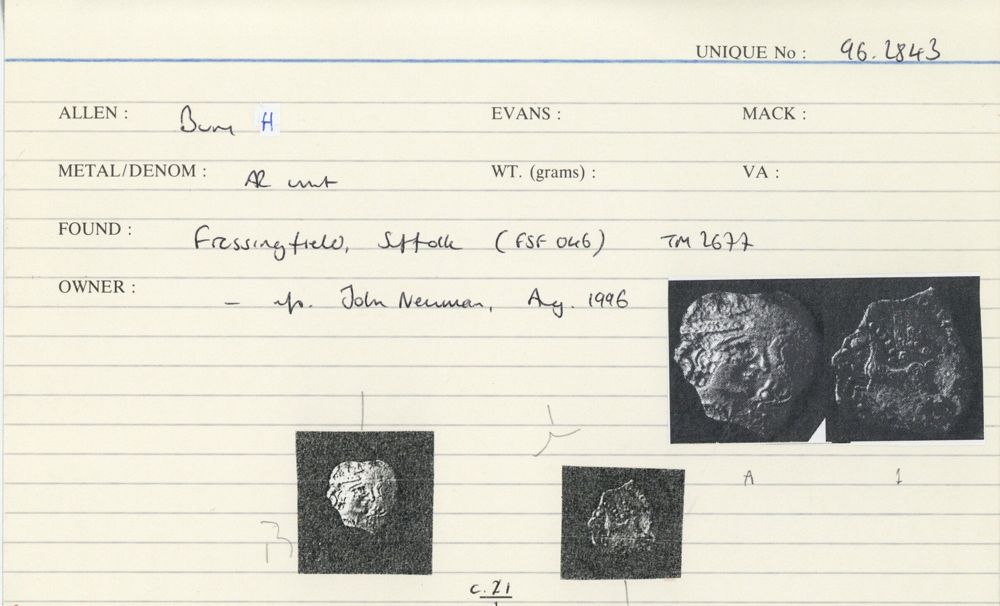 UNIQUE No : 96.2843
ALLEN : Bury H EVANS : MACK :
METAL/DENOM : AR unit WT. (grams) : VA :
FOUND : Fressingfield, Suffolk (FSF 046) TM 2677
OWNER : – info. John Newman, Aug. 1996
A 1